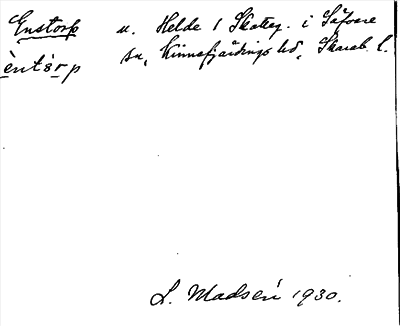 Enstorp u. Helde 1 Skatteg. i Såtvare
sn, Kinnefjärdings hd, Skarab. l.
èntśrp
L. Madsén 1930.